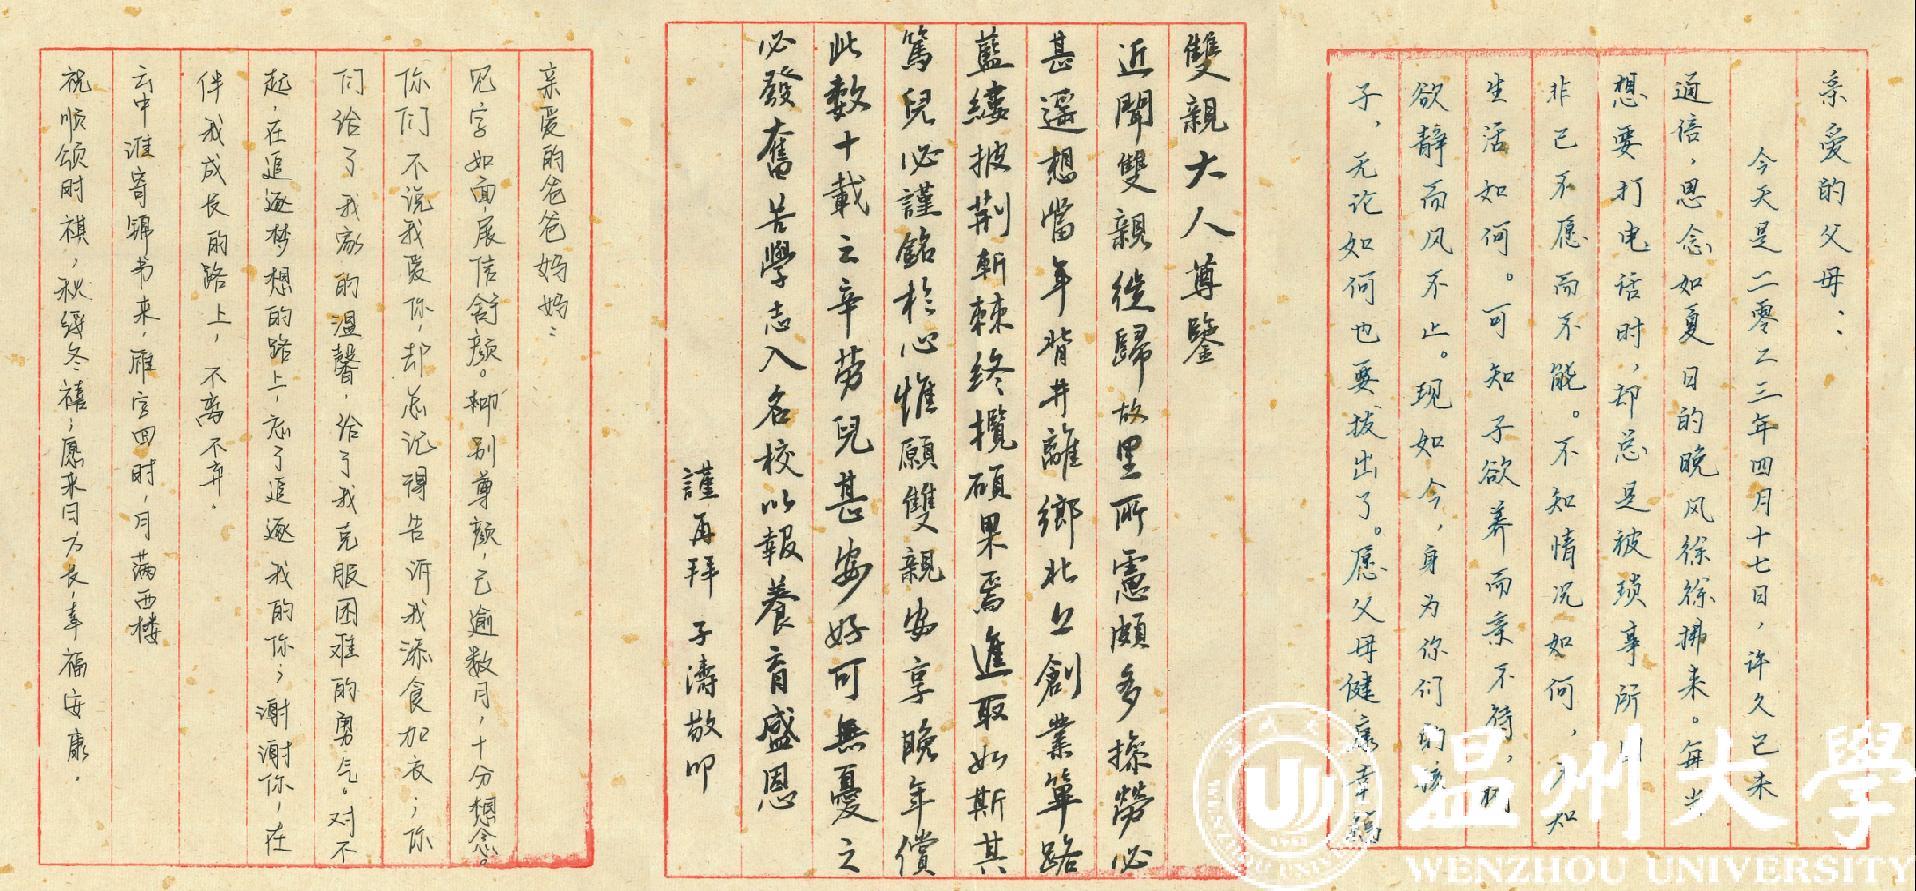 亲爱的父母：
今天是二零二三年四月十七日，许久已未
通信，思念如夏日的晚风徐徐拂来。每当
想要打电话时，却总是被琐事所
非己不愿而不能。不知情况如何，不知
生活如何。可知子欲养而亲不待，树
欲静而风不止。现如今，身为你们的孩
子，无论如何也要拔出了。愿父母健康幸福
雙親大人尊鑒
近聞雙親徙歸故里所慮頗多操勞必
甚遥想當年背井離鄉北上創業篳路
藍縷披荆斬棘終攬碩果焉進取如斯其
篤兒必謹銘於心惟願雙親安享晚年償
此數十載之辛勞兒甚安好可無憂之
必發奮苦學志入名校以報養育盛恩
謹再拜 子濤敬叩
亲爱的爸爸妈妈：
见字如面，展信舒颜。卿别尊颜，已逾数月，十分想念。
你们不说我爱你，却总记得告诉我添食加衣；你
们给了我家的温馨，给了我克服困难的勇气。对不
起，在追逐梦想的路上，忘了追逐我的你；谢谢你，在
伴我成长的路上，不离不弃。
云中谁寄锦书来，雁字回时，月满西楼
祝顺颂时祺，秋绥冬禧；愿来日方长，幸福安康。
温州大学
WENZHOU UNIVERSITY